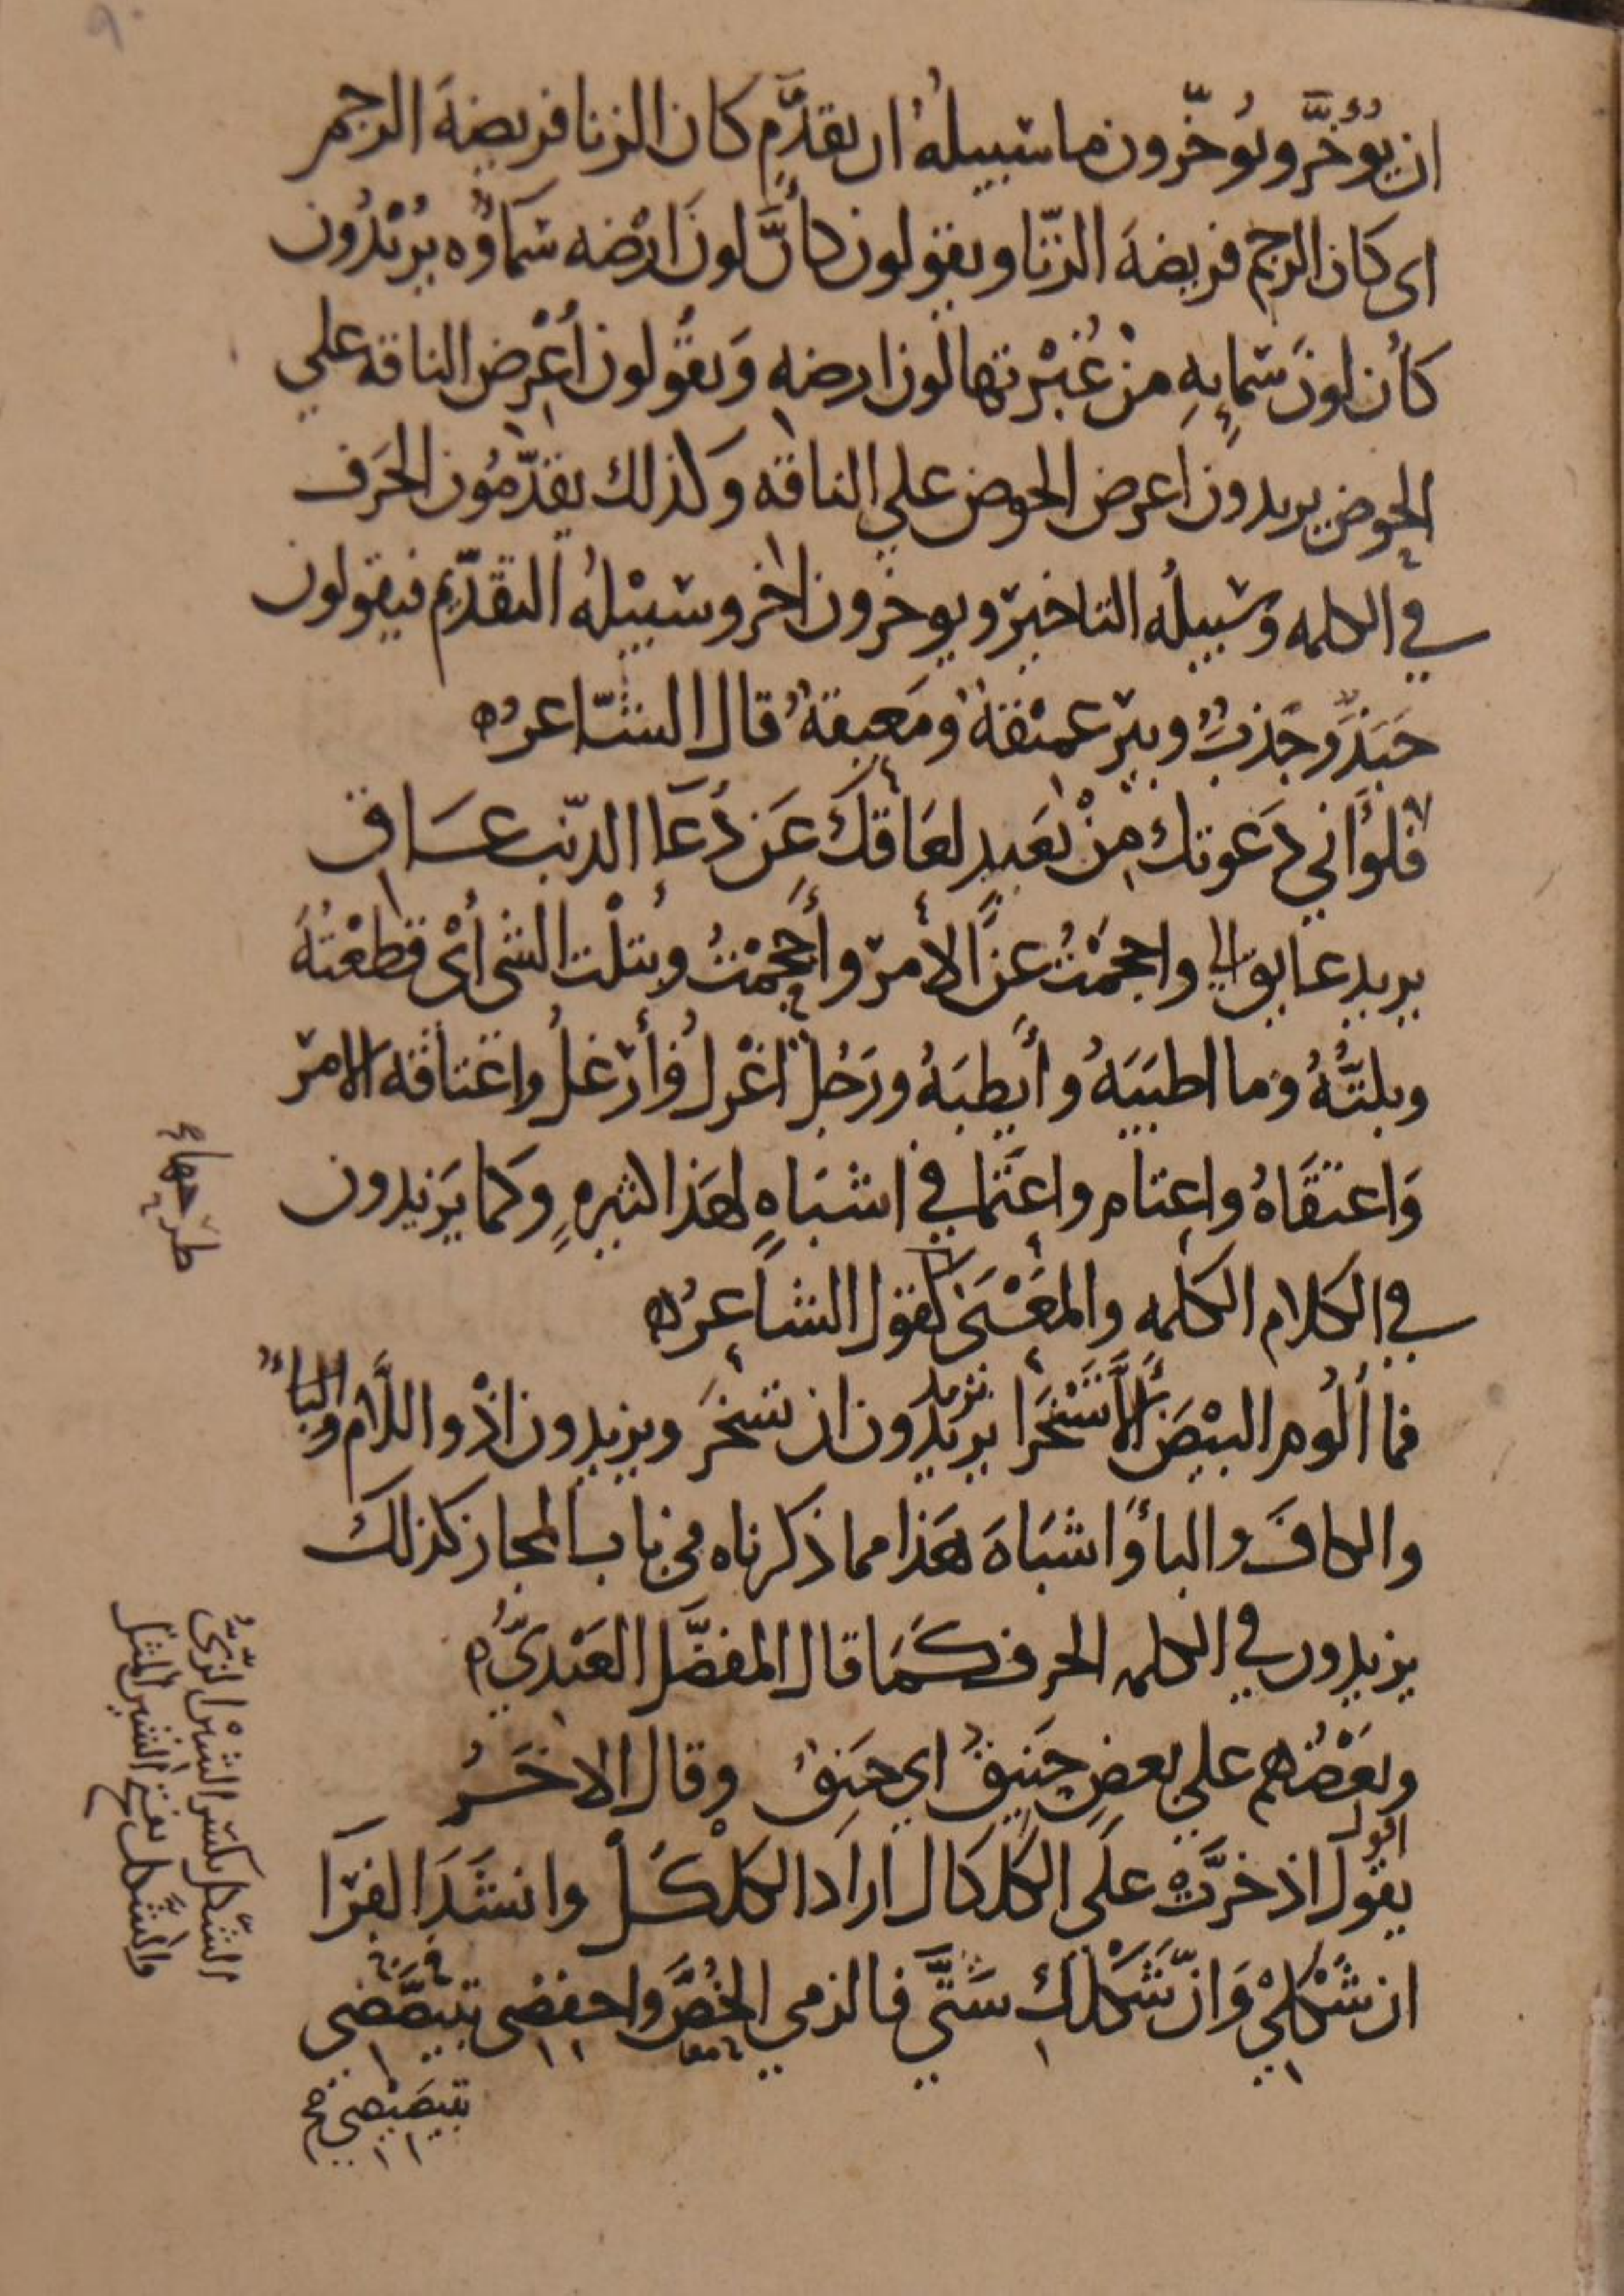 ٩٠
ان يُؤخَّر ويُوخّرون ما سبيلهُ ان يقدَّم كان الزنا فريضةَ الرجم
اى كان الرجم فريضةَ الزّنا ويقولون كأنَّ لونَ ارْضه سَماؤُه يُرِيْدُون
كأن لونَ سَمايِهِ مِنْ غُبْرتها لون ارضهِ وَيقُولون أَعْرِض الناقه على
الحوض يريدون اعرض الحوض على الناقه وكذلك يقدّمُون الحَرف
في الكلمه وسبيلُه التاخير ويوخرون اخر وسبيْلهُ التقدّيم فيقولون
جَبَذَ وجَذبَ وبير عميْقة ومَعِيقة قال الشّاعرُ ه
فلو أنّي دَعَوتك مِنْ بَعيدٍ لعَاقكَ عَن دُعَآ الذيب عَاق
يريد عايق واحجمْتُ عن الأمر وأجْحمْتُ وبتلْت الشى أىْ قطعْتُهُ
وبلتُّهُ وما اطيَبَهُ وأيطبَهُ ورَجُل اغْرلُ وأرْغلُ واعْتاقه الامر
وَاعتقَاهُ واعتام واعتَمَا في اشبَاهٍ لهَذا كثيرهِ وكما يَزيدون
في الكلام الكلمه والمعْنَى كقول الشاعرُ ه
فما ألُوم البيْضَ ألَّا تَسْخَرَا يريدُون ان تسْخرَ ويزيدون اذْ واللَّام والباء
والكافَ والبأ واشبَاهَ هَذا مما ذكرناه في باب المجاز كذلك
يزيدون في الكلمه الحرف كَمَا قال المفضَّل العَبْديُّ ه
وبعْضُهم على بعضٍ حَنِيقُ اى حَنِقُ وقال الاخَرُ
اقول
يقول اذ خرَّت على الكلكال اراد الكلكَلْ وانشَدَ الفرّا
ان شَكْلِيْ وَانّ شَكْلكِ شَتَّى فالزمي الخُصَّ واخفضى تبيضَّضى
تبيضضي خ
الشكل بكسر الشين الزيّ
والشكل بفتح الشين المثل